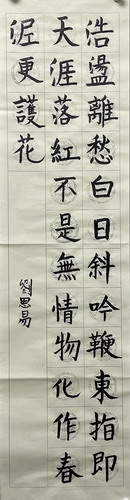 浩盪離愁白日斜吟鞭東指即
天涯落紅不是無情物化作春
泥更護花
劉思易